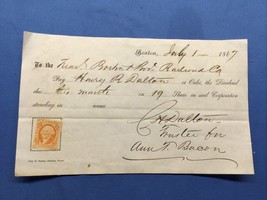 Boston, July 1 — 1867
To the Treas. Boston & Prov. Railroad Co
Pay Henry R Dalton or Order, the Dividend
due this month on 19 Shares in said Corporation
standing in name
C H Dalton
Trustee for
Ann F. Bacon